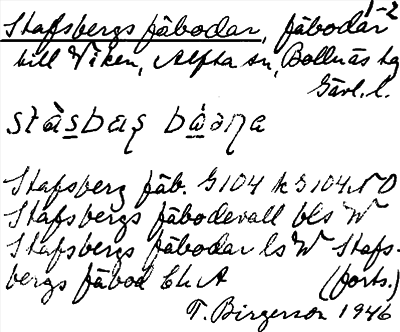 Stafsbergs fäbodar, fäbodar 1-2
till Viken, Alfta sn, Bollnäs tg
Gävl. l.
Stafsberg fäb. G104
Stafsbergs fäbodevall bls W
Stafsbergs fäbodar ls W Stafs-
bergs fäbod Ek A (forts.)
T. Birgerson 1946